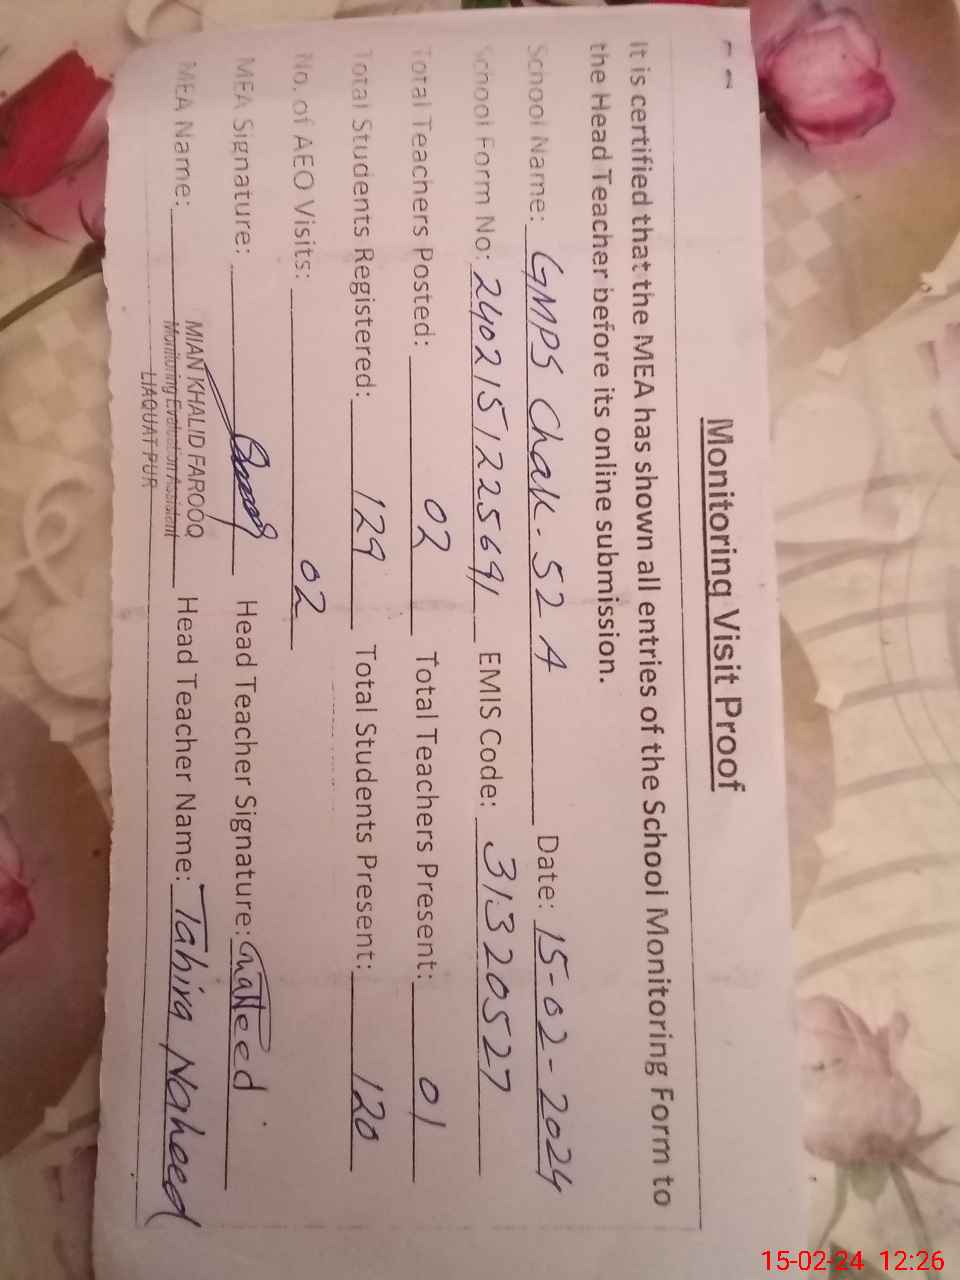 Monitoring Visit Proof
It is certified that the MEA has shown all entries of the School Monitoring Form to
the Head Teacher before its online submission.
School Name: GMPS Chak. 52 A Date: 15-02-2024
School Form No: 2402151225691 EMIS Code: 31320527
Total Teachers Posted: 02 Total Teachers Present: 01
Total Students Registered: 129 Total Students Present: 120
No. of AEO Visits: 02
MEA Signature: Head Teacher Signature:
MEA Name: MIAN KHALID FAROOQ Head Teacher Name: Tahira Naheed
Monitoring Evaluation Assistant
LIAQUAT PUR
15-02-24 12:26